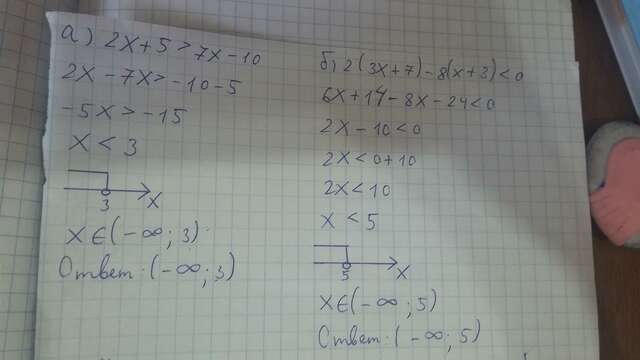 а) 2x+5>7x-10
2x-7x>-10-5
-5x>-15
x<3
3 x
x∈(-∞;3)
Ответ:(-∞;3)
б) 2(3x+7)-8(x+3)<0
6x+14-8x-24<0
2x-10<0
2x<0+10
2x<10
x<5
5 x
x∈(-∞;5)
Ответ:(-∞;5)